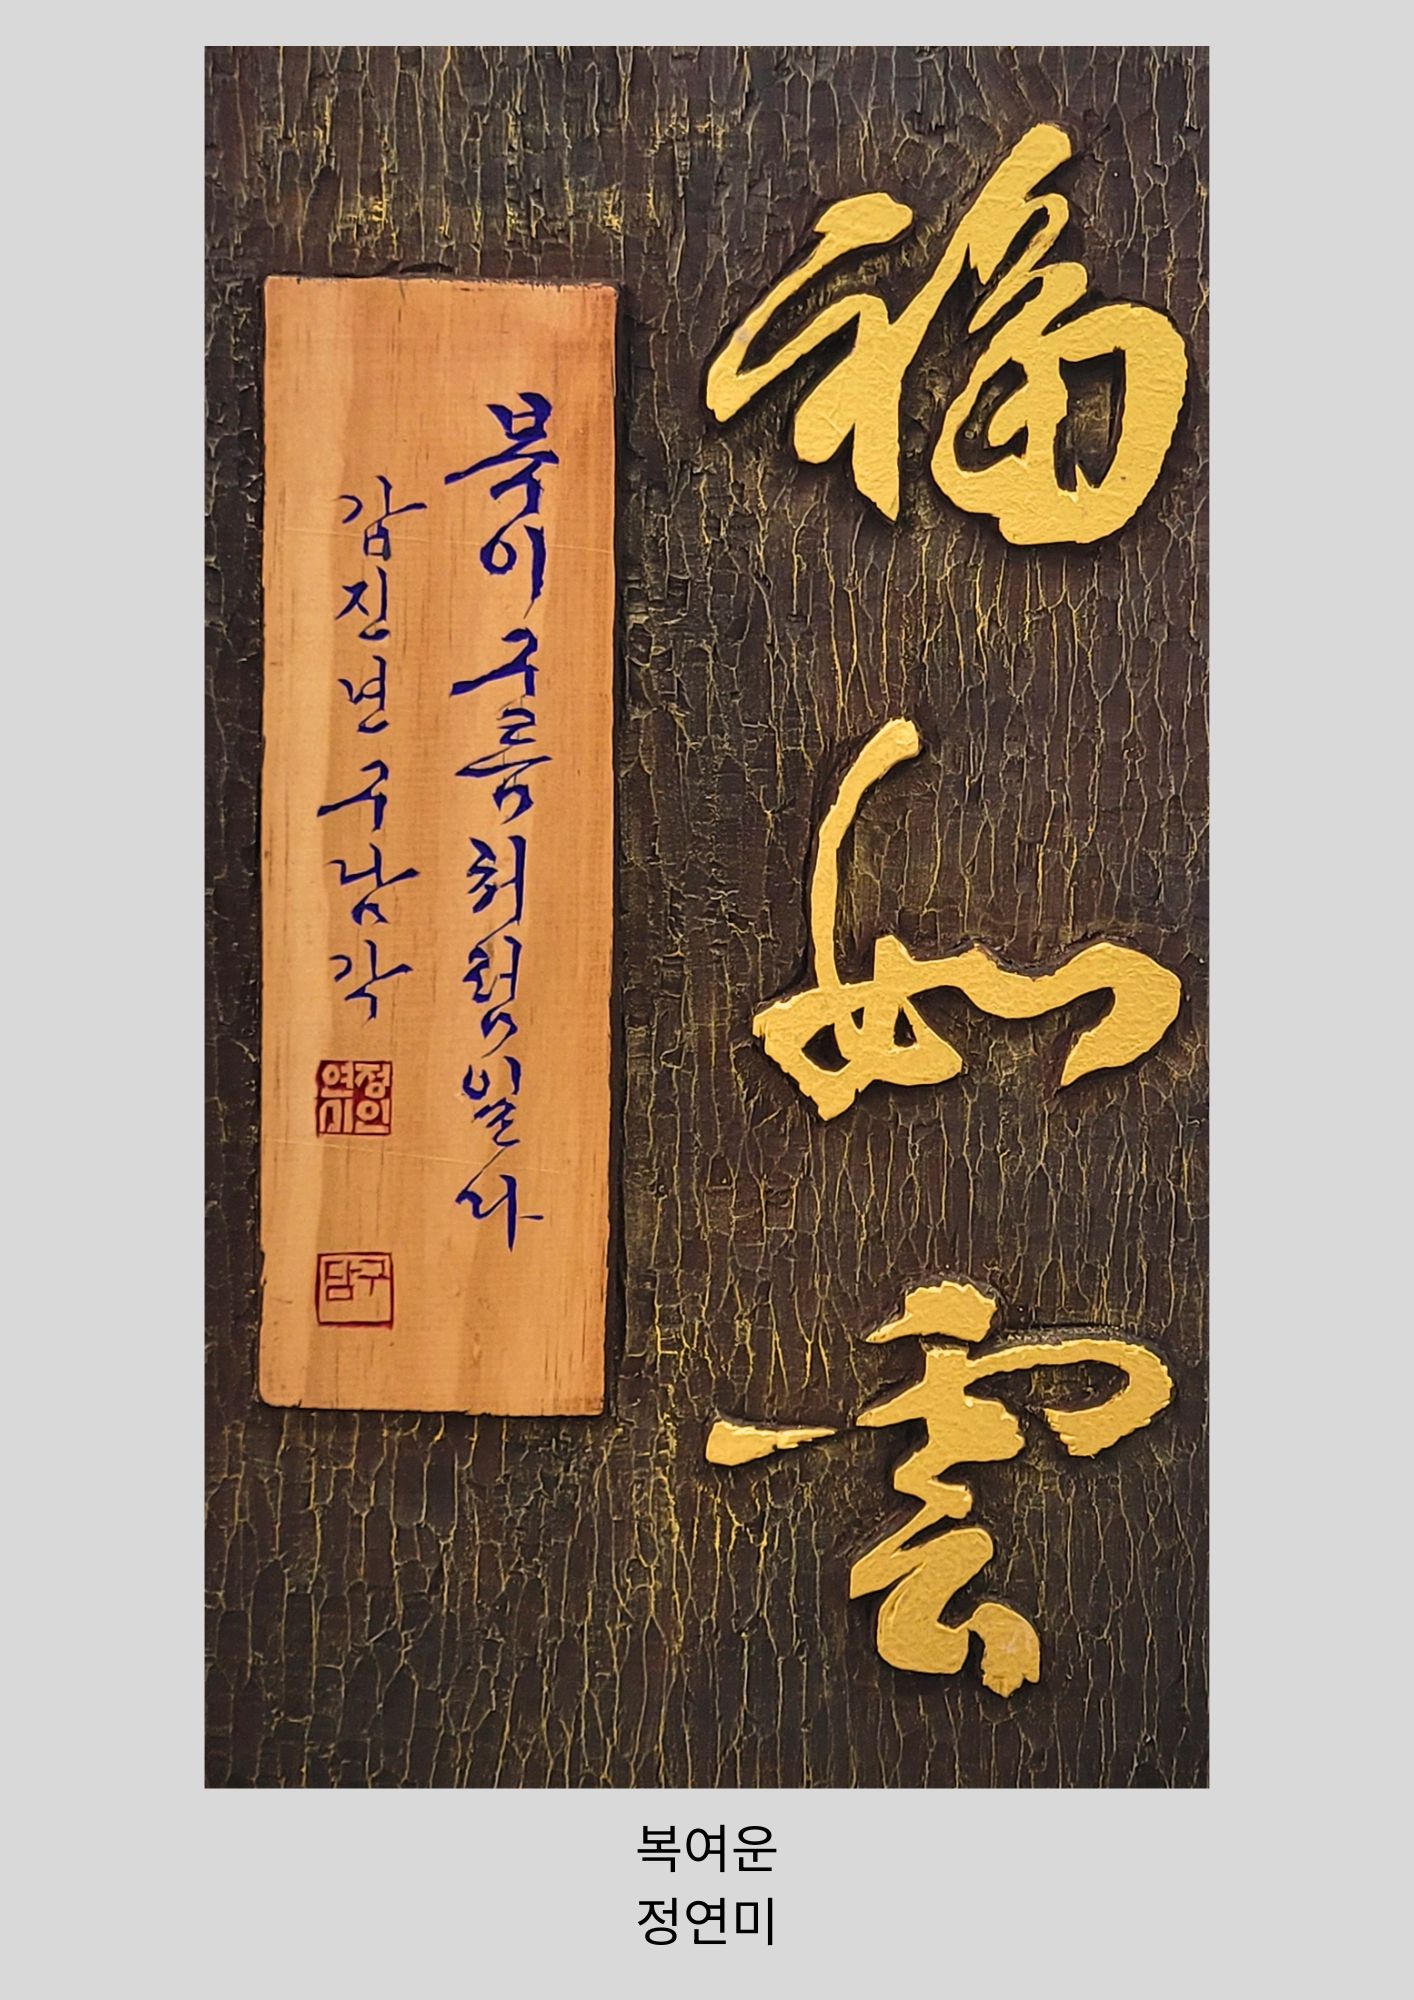 福如雲
복이구름처럼일다
갑진년구담각
정연미인
구담
복여운
정연미